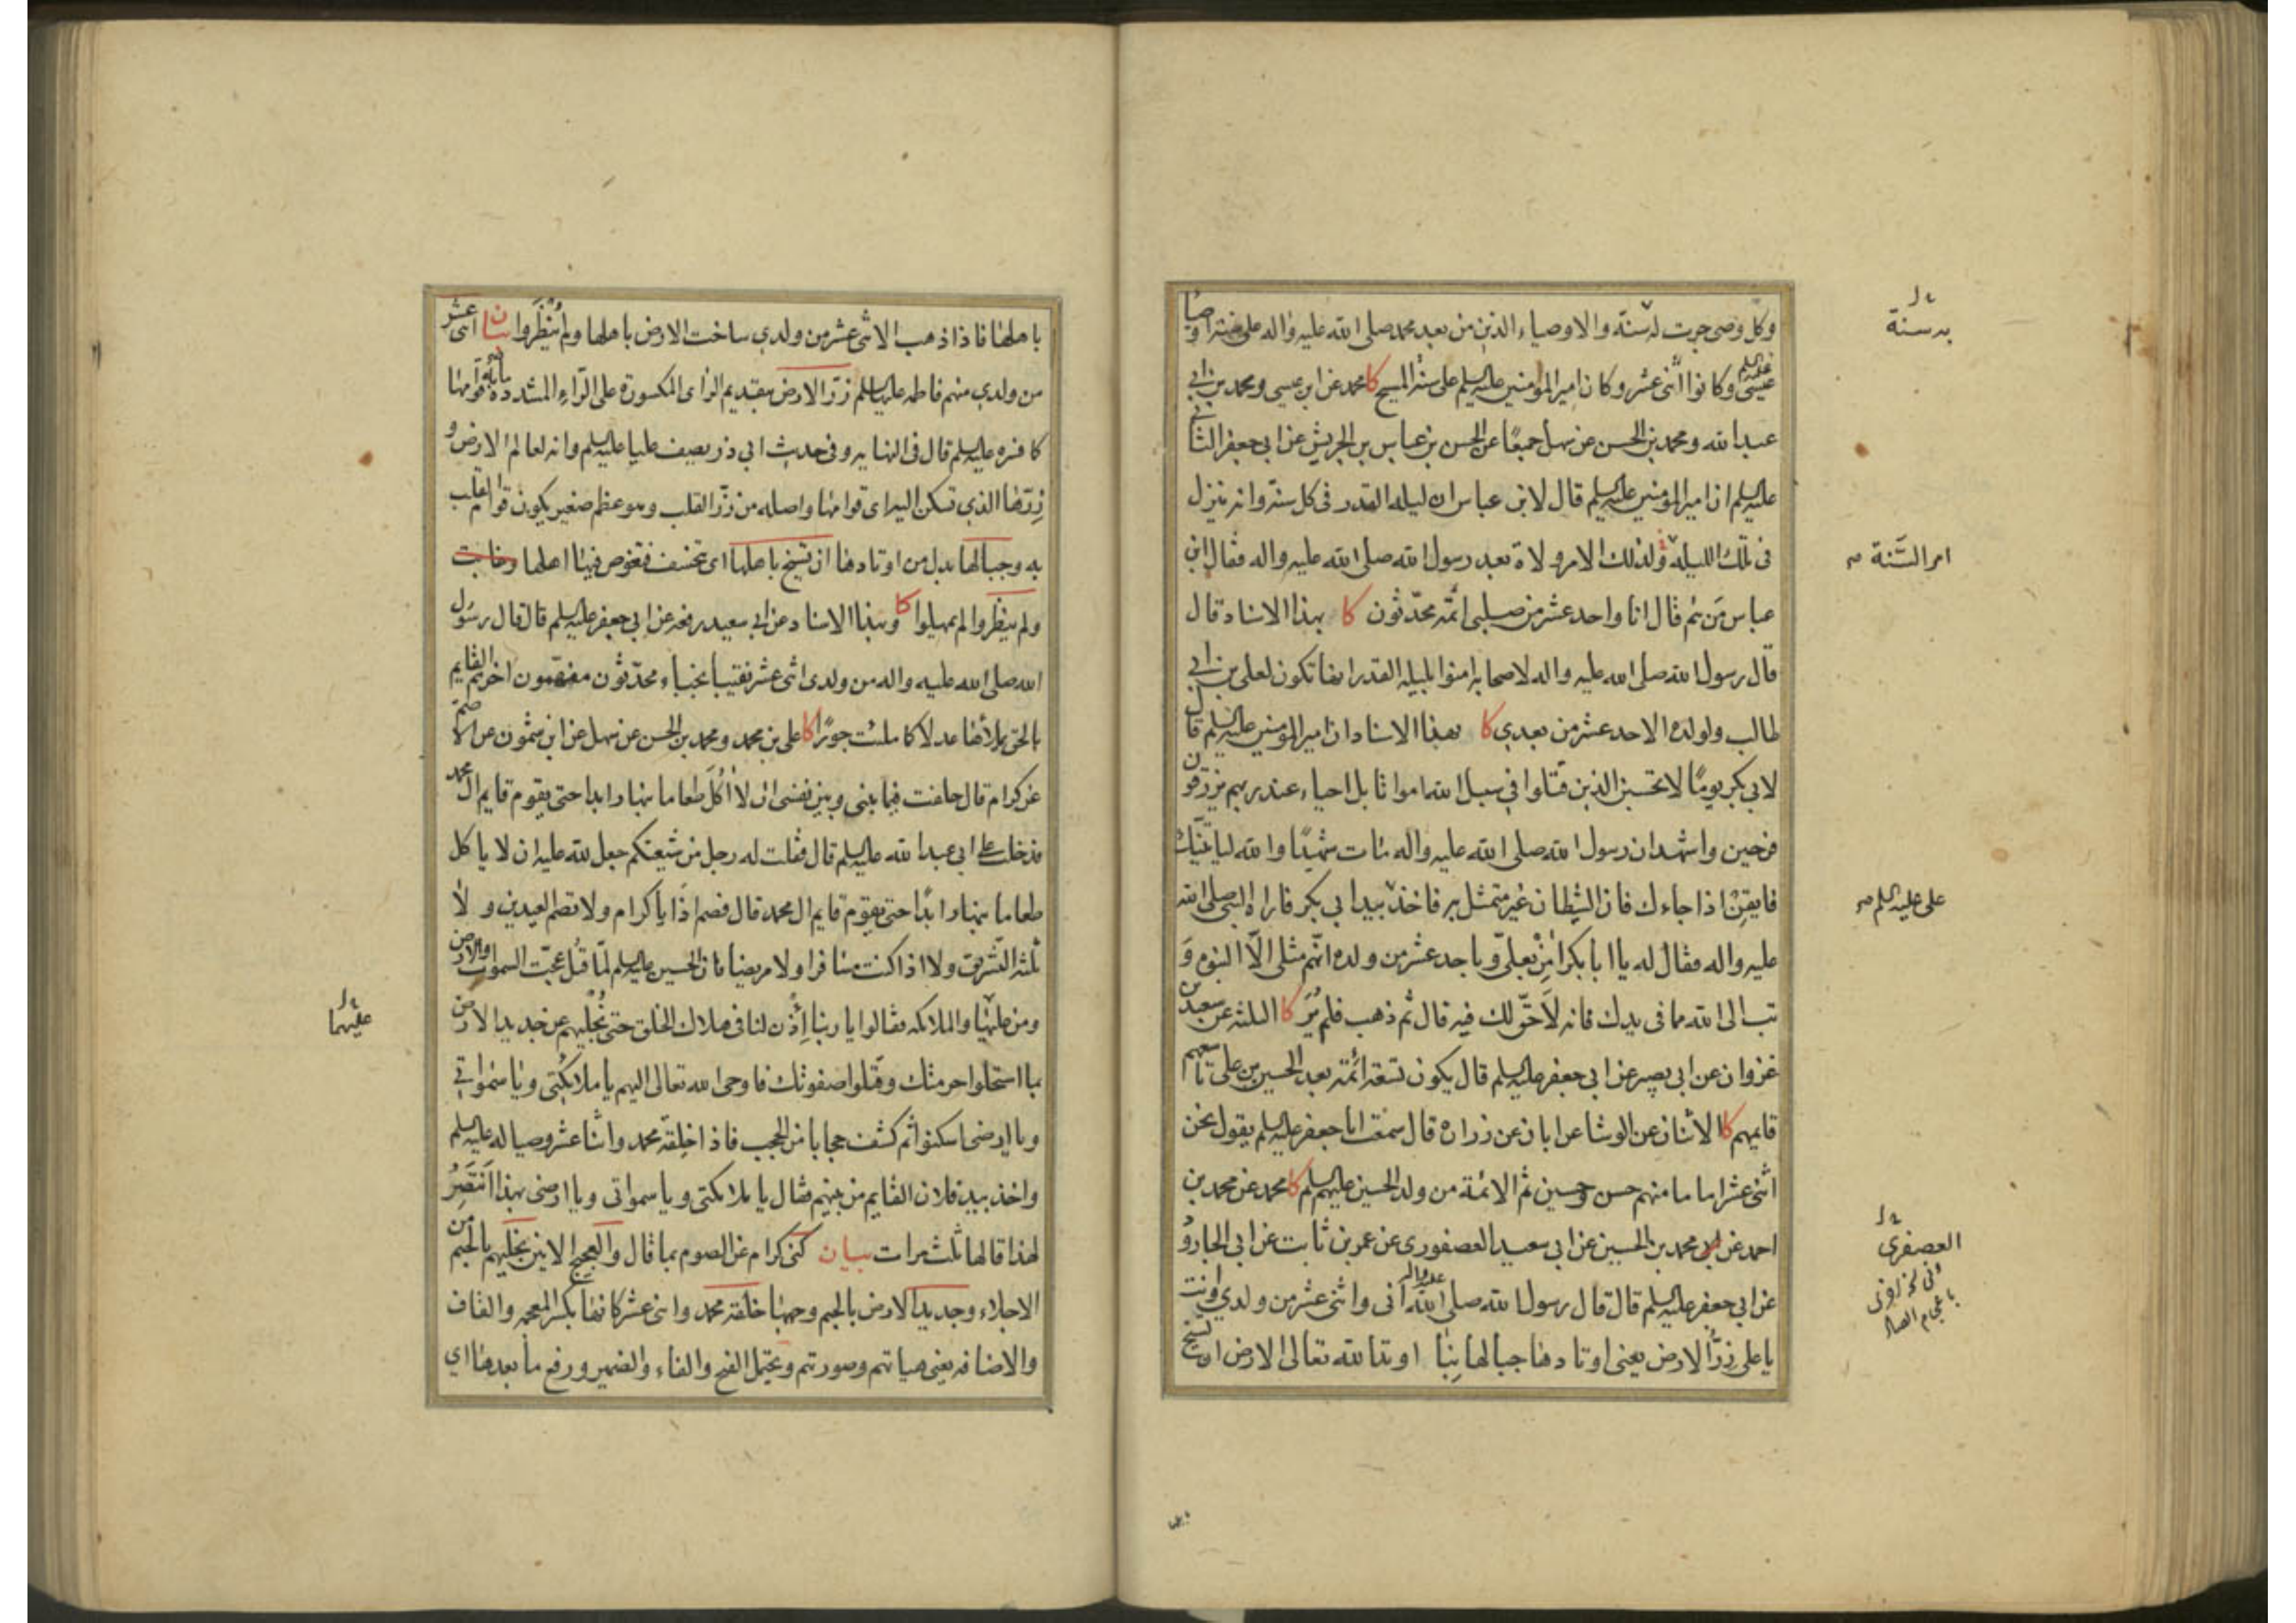 وكل وصي جرت له سنة والاوصياء الذين من بعد محمد صلى الله عليه واله على سنة اوصيا
عيسى عليه السلم وكانوا اثنى عشر وكان امير المؤمنين عليه السلم على سنة المسيح كا محمد عن ابن عيسى ومحمد بن ابي
عبد الله ومحمد بن الحسن عن سهل جميعًا عن الحسن بن عباس بن الحريش عن ابي جعفر الثاني
عليه السلم ان امير المؤمنين عليه السلم قال لابن عباس ان ليلة القدر في كل سنة وانه ينزل
في تلك الليلة ولذلك الامر ولاة بعد رسول الله صلى الله عليه واله فقال ابن
عباس مَن هُم قال انا واحد عشر من صلبي ائمّة محدّثون كا بهذا الاسناد قال
قال رسول الله صلى الله عليه واله لاصحابه امنوا بليلة القدر انها تكون لعلي بن ابي
طالب ولولده الاحد عشر من بعدي كا بهذا الاسناد ان امير المؤمنين عليه السلم قال
لابي بكر يومًا لا تحسبن الذين قتلوا في سبيل الله امواتا بل احياء عند ربهم يرزقون
فرحين واشهد ان رسول الله صلى الله عليه واله مات شهيدًا والله لياتينّك
فايقِنْ اذا جاءك فان الشيطان غير متمثل به فاخذ بيد ابي بكر فاراه النبي صلى الله
عليه واله فقال له يا ابا بكر امِنْ بعليّ وباحد عشر من ولده انهم مثلي الّا النبوة وَ
تب الى الله مما في يدك فانه لا حقّ لك فيه قال ثم ذهب فلم يُرَ كا الثلثة عن سعيد بن
غزوان عن ابي بصير عن ابي جعفر عليه السلم قال يكون تسعة ائمة بعد الحسين بن علي تاسعهم
قايمهم كا الاثنان عن الوشا عن ابان عن زرارة قال سمعت ابا جعفر عليه السلم يقول نحن
اثنى عشر اماما منهم حسن وحسين ثم الائمة من ولد الحسين عليهم السلم كا محمد عن محمد بن
احمد عن محمد بن الحسين عن ابي سعيد العصفوري عن عمر بن ثابت عن ابي الجارود
عن ابي جعفر عليه السلم قال قال رسول الله صلى الله عليه واله اني واثنى عشر من ولدي وانت
يا علي زرّ الارض يعني اوتادها جبالها بنا اوتد الله تعالى الارض ان تسيخ
به سنة
امر السَّنة
على عليه السلم
العصفري
باهلها فاذا ذهب الاثنى عشر من ولدي ساخت الارض باهلها ولم يُنظَروا بيان اثنى عشر
من ولدي منهم فاطمة عليها السلم زرّ الارض بتقديم الزاى المكسورة على الرّاء المشددة قوامها
كا فسره عليه السلم قال في النهايه وفي حديث ابي ذر يصف عليا عليه السلم وانه لعالم الارض و
زِرّها الذي تسكن اليه اى قوامها واصله من زرّ القلب وهو عظم صغير يكون قوام القلب
به وجبالها بدل من اوتادها ان تسيخ باهلها اى تخسف فتغوص فيها اهلها
ولم ينظَروا لم يمهلوا كا وبهذا الاسناد عن ابي سعيد رفعه عن ابي جعفر عليه السلم قال قال رسول
الله صلى الله عليه واله من ولدى اثنى عشر نقيبا نجباء محدّثون مفهّمون اخرهم القايم
بالحق يملأها عدلا كما ملئت جورًا كا علي بن محمد ومحمد بن الحسن عن سهل عن ابن شمّون عن الاصم
عن كرام قال حلفت فيما بيني وبين نفسى ان لا اُكُلَ طعاما بنهار ابدا حتى يقوم قايم ال محمد
فدخلت على ابي عبد الله عليه السلم قال فقلت له رجل من شيعتكم جعل لله عليه ان لا ياكل
طعاما بنهار ابدًا حتى يقوم قايم ال محمد قال فصم اذًا يا كرام ولا تصم العيدين و لا
ثلثة التشريق ولا اذا كنت مسافرا ولا مريضا فان الحسين عليه السلم لمّا قُتل عجّت السموات والارض
ومن عليها والملائكة فقالوا يا ربنا إئذن لنا في هلاك الخلق حتى نُجليهم عن جديد الارض
بما استحلوا حرمتك وقتلوا صفوتك فاوحى الله تعالى اليهم يا ملائكتى ويا سمواتي
ويا ارضي اسكنوا ثم كشف حجابا من الحجب فاذا خلِقة محمد واثنا عشر وصيا له عليه السلم
واخذ بيد فلان القايم من بينهم فقال يا ملائكتي ويا سمواتى ويا ارضى بهذا انتصِرُ
لهذا قالها ثلث مرات بيان كنى كرام عن الصوم بما قال والعجيج الانين نجليهم بالجيم من
الاجلاء وجديد الارض بالجيم وجهها خلقة محمد واثنى عشر كانها بكسر المعجمه والقاف
والاضافه يعني هياتهم وصورتهم ويحتمل الفتح والفاء والضمير ورفع ما بعدها اي
عليهما